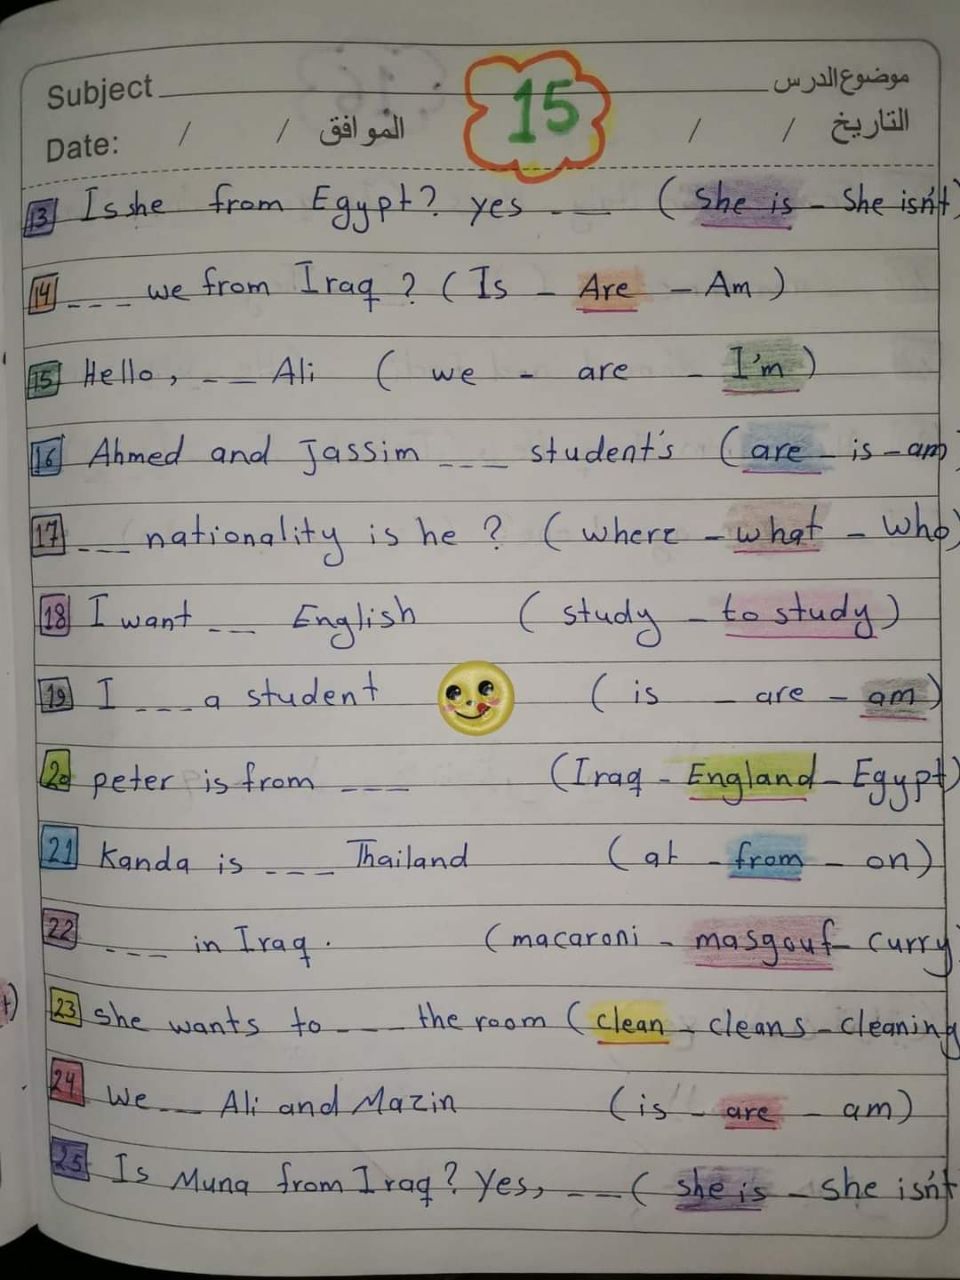 Subject موضوع الدرس
15
Date: / / الموافق / / التاريخ
13 Is she from Egypt? yes --- (she is - She isn't)
14 --- we from Iraq? (Is - Are - Am)
15 Hello, --- Ali (we - are - I'm)
16 Ahmed and Jassim --- student's (are - is - am)
17 --- nationality is he? (where - what - Who)
18 I want --- English (study - to study)
19 I --- a student (is - are - am)
20 peter is from --- (Iraq - England - Egypt)
21 Kanda is --- Thailand (at - from - on)
22 --- in Iraq. (macaroni - masgouf - curry)
23 she wants to --- the room (clean - cleans - cleaning
24 We --- Ali and Mazin (is - are - am)
25 Is Muna from Iraq? Yes, --- (she is - she isn't